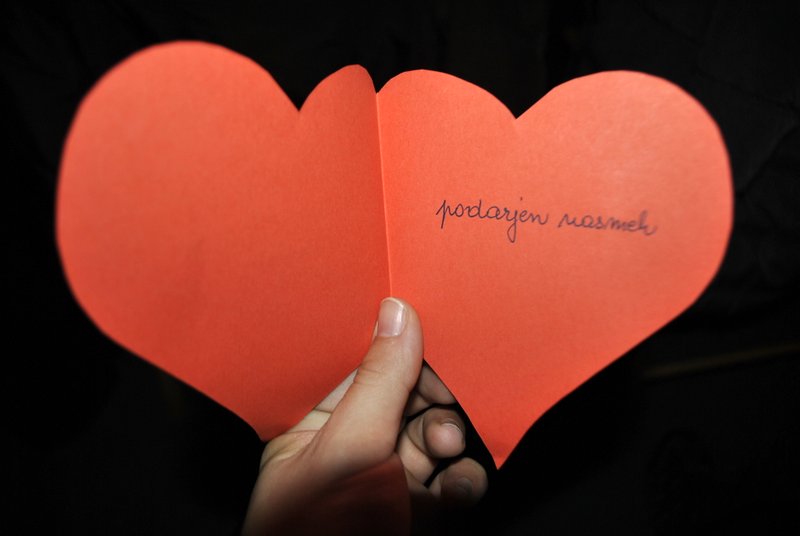 podarjen nasmeh